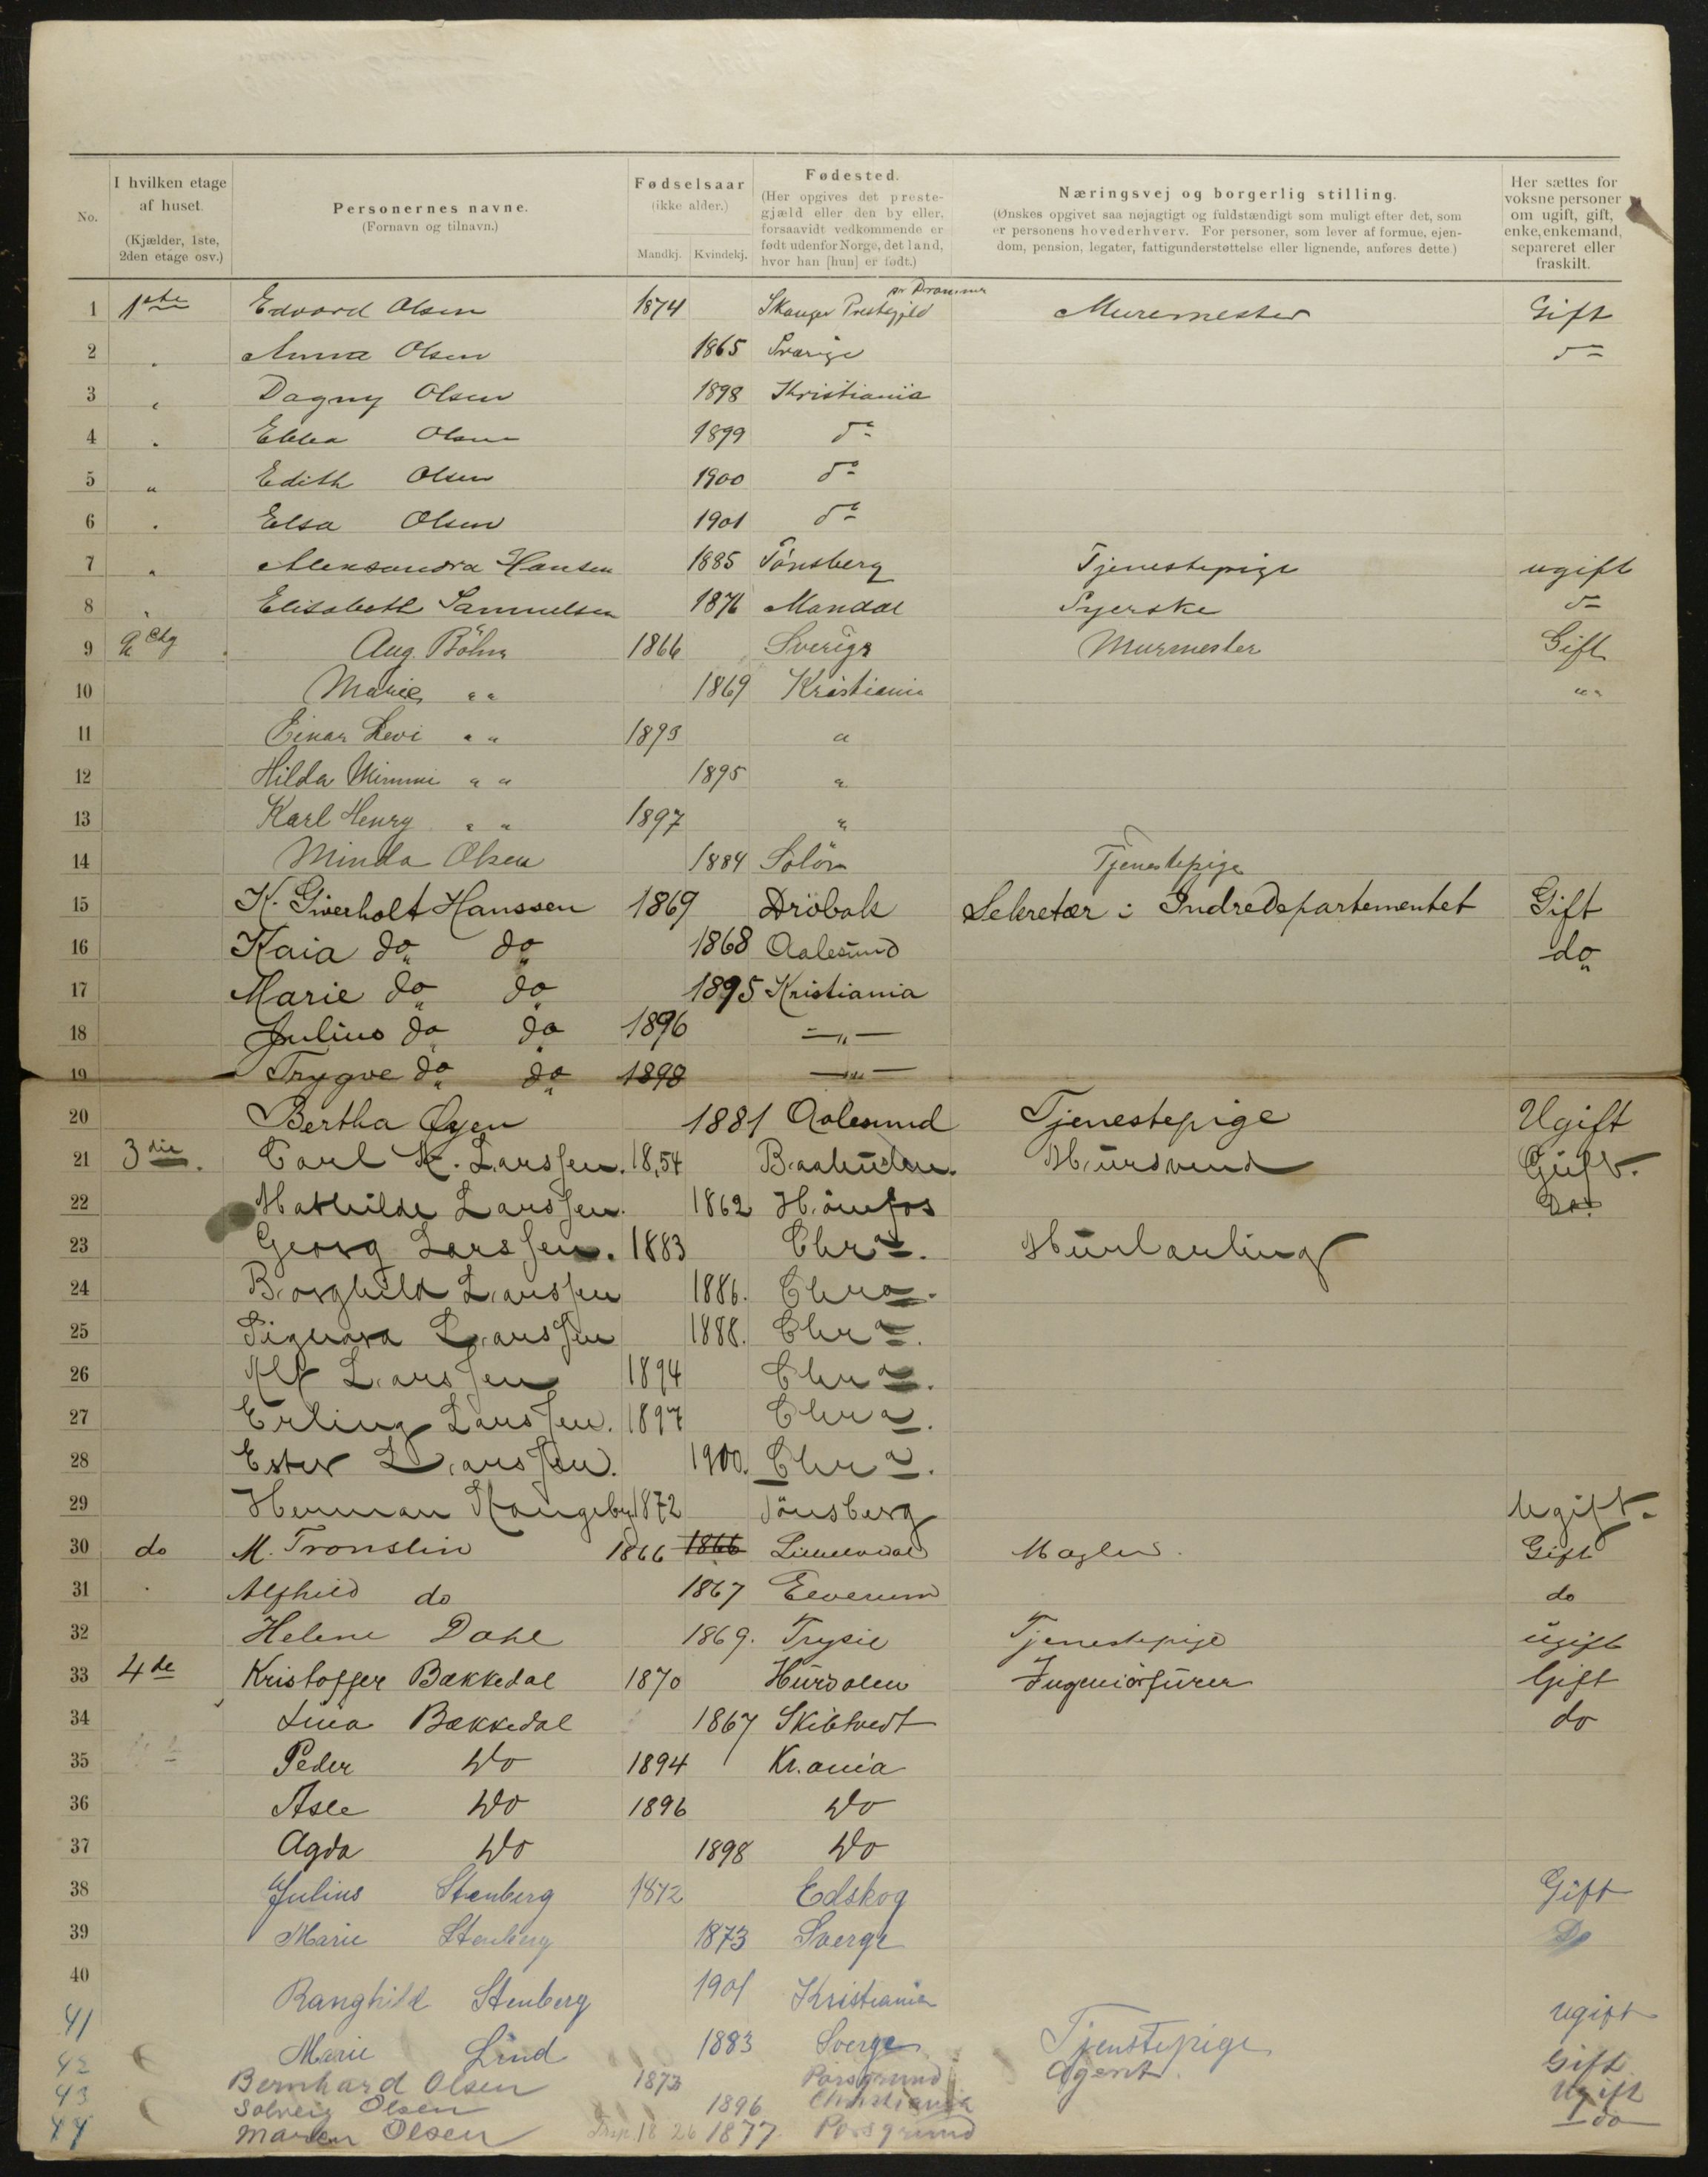 No. I hvilken etage af huset. (Kjælder, 1ste, 2den etage osv.) Personernes navne. (Fornavn og tilnavn.) Fødselsaar (ikke alder.) Mandkj. Kvindekj. Fødested. (Her opgives det prestegjæld eller den by eller, forsaavidt vedkommende er født udenfor Norge, det land, hvor han [hun] er født.) Næringsvej og borgerlig stilling. (Ønskes opgivet saa nøjagtigt og fuldstændigt som muligt efter det, som er personens hovederhverv. For personer, som lever af formue, ejendom, pension, legater, fattigunderstøttelse eller lignende, anføres dette.) Her sættes for voksne personer om ugift, gift, enke, enkemand, separeret eller fraskilt.
1 1ste Edvard Olsen 1874 Skauger Prestegjeld pr Drammen Muremester Gift
2 " Anna Olsen 1865 Sverige do
3 " Dagny Olsen 1898 Kristiania
4 " Ebba Olsen 1899 do
5 " Edith Olsen 1900 do
6 " Elsa Olsen 1901 do
7 " Aleksandra Hansen 1885 Tönsberg Tjenestepige ugift
8 " Elisabeth Samuelsen 1876 Mandal Syerske do
9 2 etg Aug. Böhn 1866 Sverige Murmester Gift
10 Marie " " 1869 Kristiania " "
11 Einar Levi " " 1893 "
12 Hilda Mimmi " " 1895 "
13 Karl Henry " " 1897 "
14 Minda Olsen 1884 Solör Tjenestepige
15 K. Giverholt Hanssen 1869 Dröbak Sekretær i Indredepartementet Gift
16 Kaia do do 1868 Aalesund do
17 Marie do do 1895 Kristiania
18 Julius do do 1896 — " —
19 Trygve do do 1898 — " —
20 Bertha Øyen 1881 Aalesund Tjenestepige Ugift
21 3die. Carl K. Larssen. 1854 Gift.
22 Mathilde Larssen. 1862 Hönefos Do.
23 Georg Larssen. 1883 Chra.
24 Borghild Larssen 1886. Chra.
25 Signora Larssen 1888. Chra.
26 Alf Larssen 1894 Chra.
27 Erling Larssen. 1897 Chra.
28 Ester Larssen. 1900. Chra.
29 Herman 1872 Tönsberg Ugift.
30 do M. Tronslin 1866 1866 Gift
31 " Alfhild do 1867 Elverum do
32 Helene Dahl 1869. Trysil Tjenestepige ugift
33 4de Kristoffer Bækkedal 1870 Hurdalen Gift
34 Lina Bækkedal 1867 Skibtvedt do
35 Peder Do 1894 Kr.ania
36 Asle Do 1896 Do
37 Agda Do 1898 Do
38 Julius Stenberg 1872 Edskog Gift
39 Marie Stenberg 1873 Sverge Do
40 Ranghild Stenberg 1901 Kristiania
41 Marie Lind 1883 Sverge Tjenstepige ugift
42 Bernhard Olsen 1873 Porsgrund Agent. Gift
43 Solveig Olsen 1896 Christiania Ugift
44 Maren Olsen 1877 Porsgrund do